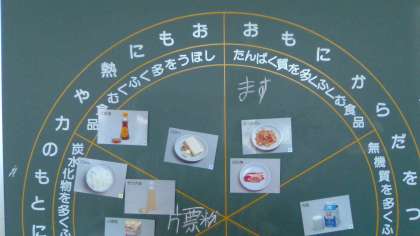 おもに熱や力のもとに
おもにからだをつ
しぼうを多くふくむ食品
たんぱく質を多くふくむ食品
炭水化物を多くふ
無機質を多くふ
ます
片票粉